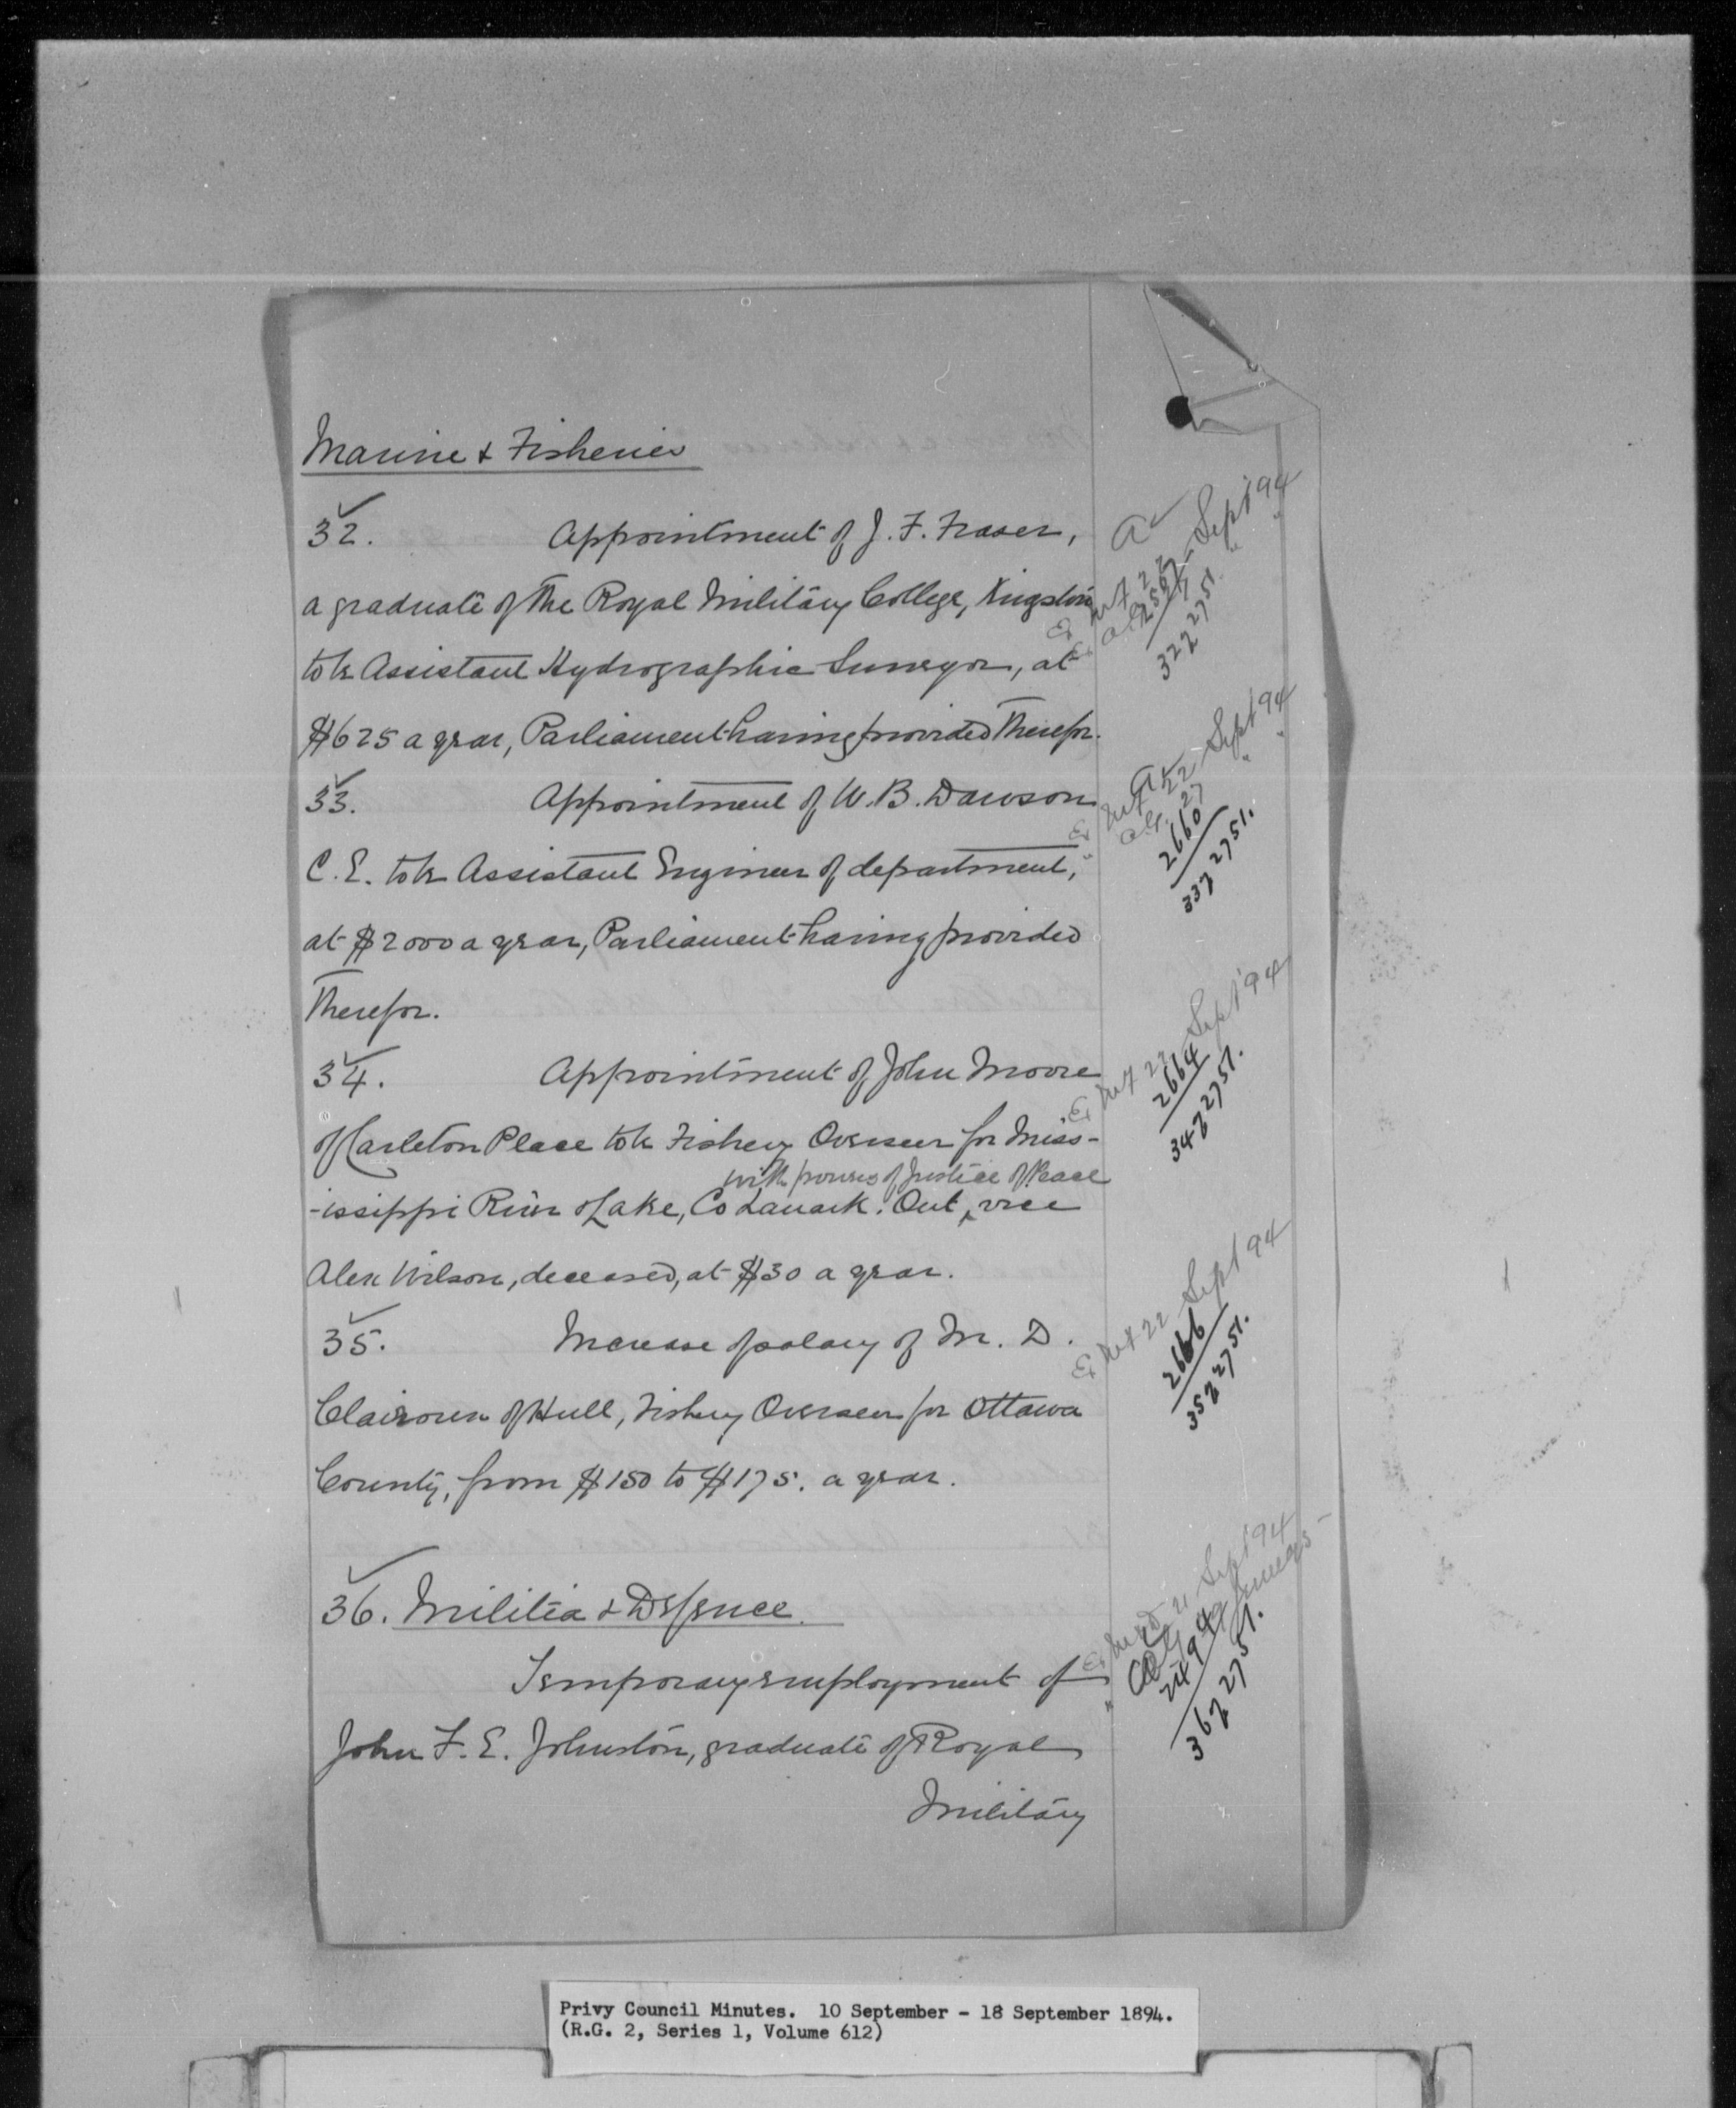 Marine & Fisheries
32. Appointment of J. F. Fraser,
a graduate of the Royal Military College, Kingston
to be Assistant Hydrographic Surveyor, at
$625 a year, Parliament having provided therefor.
33. Appointment of W. B. Dawson
C. E. to be Assistant Engineer of department,
at $2000 a year, Parliament having provided
therefor.
34. Appointment of John Moore
of Carleton Place to be Fishery Overseer for Miss-
with powers of Justice of Peace
-issippi River & Lake, Co Lanark. Ont, vice
Alex Wilson, deceased, at $30 a year.
35. Increase of salary of M. D.
of Hull, Fishery Overseer for Ottawa
County, from $150 to $175. a year.
36. Militia & Defence.
Temporary employment of
John F. E. Johnston, graduate of Royal
Military
a
Ex M&F 22 Sept 94
32 2751.
a
Ex M&F 22 Sept 94
" a.g. 27 " "
2660
33 2751.
Ex M&F 22 Sept 94
2664
34 2751.
Ex M&F 22 Sept 94
2666
35 2751.
Ex M&D 21 Sept 94
36 2751.
Privy Council Minutes. 10 September - 18 September 1894.
(R.G. 2, Series 1, Volume 612)